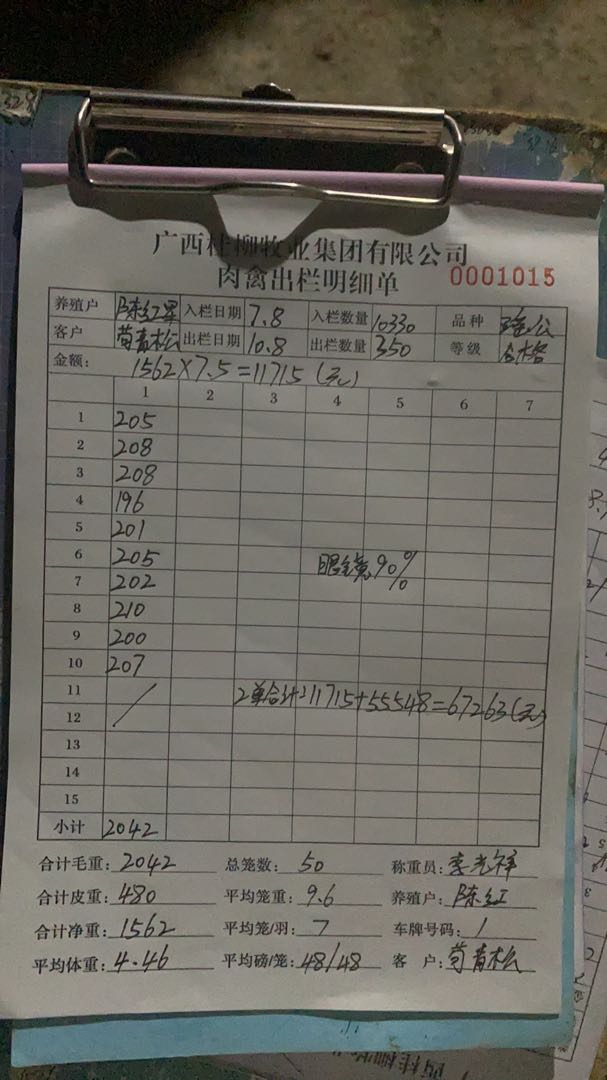 广西桂柳牧业集团有限公司
肉禽出栏明细单 0001015
养殖户 陈红星 入栏日期 7.8 入栏数量 10330 品种
客户 荀青松 出栏日期 10.8 出栏数量 350 等级 合格
金额: 1562×7.5=11715(元)
1 2 3 4 5 6 7
1 205
2 208
3 208
4 196
5 201
6 205 眼镜90%
7 202
8 210
9 200
10 207
11 2单合计:11715+55548=67263(元)
12
13
14
15
小计 2042
合计毛重: 2042 总笼数: 50 称重员: 李光祥
合计皮重: 480 平均笼重: 9.6 养殖户: 陈红
合计净重: 1562 平均笼/羽: 7 车牌号码: /
平均体重: 4.46 平均磅/笼: 48/48 客户: 荀青松